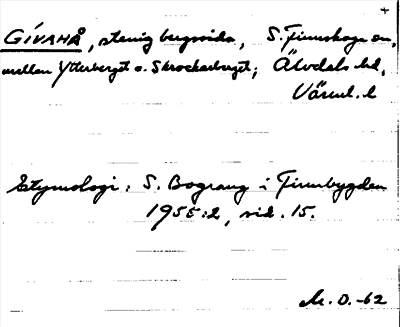 GÍVAHÅ, stenig bergssida, S. Finnskoga sn,
mellan Ytterberget o. Skrockarberget; Älvdals hd,
Värml. l
Etymologi: S. Bograng i Finnbygden
1955:2, sid. 15.
M. O. -62